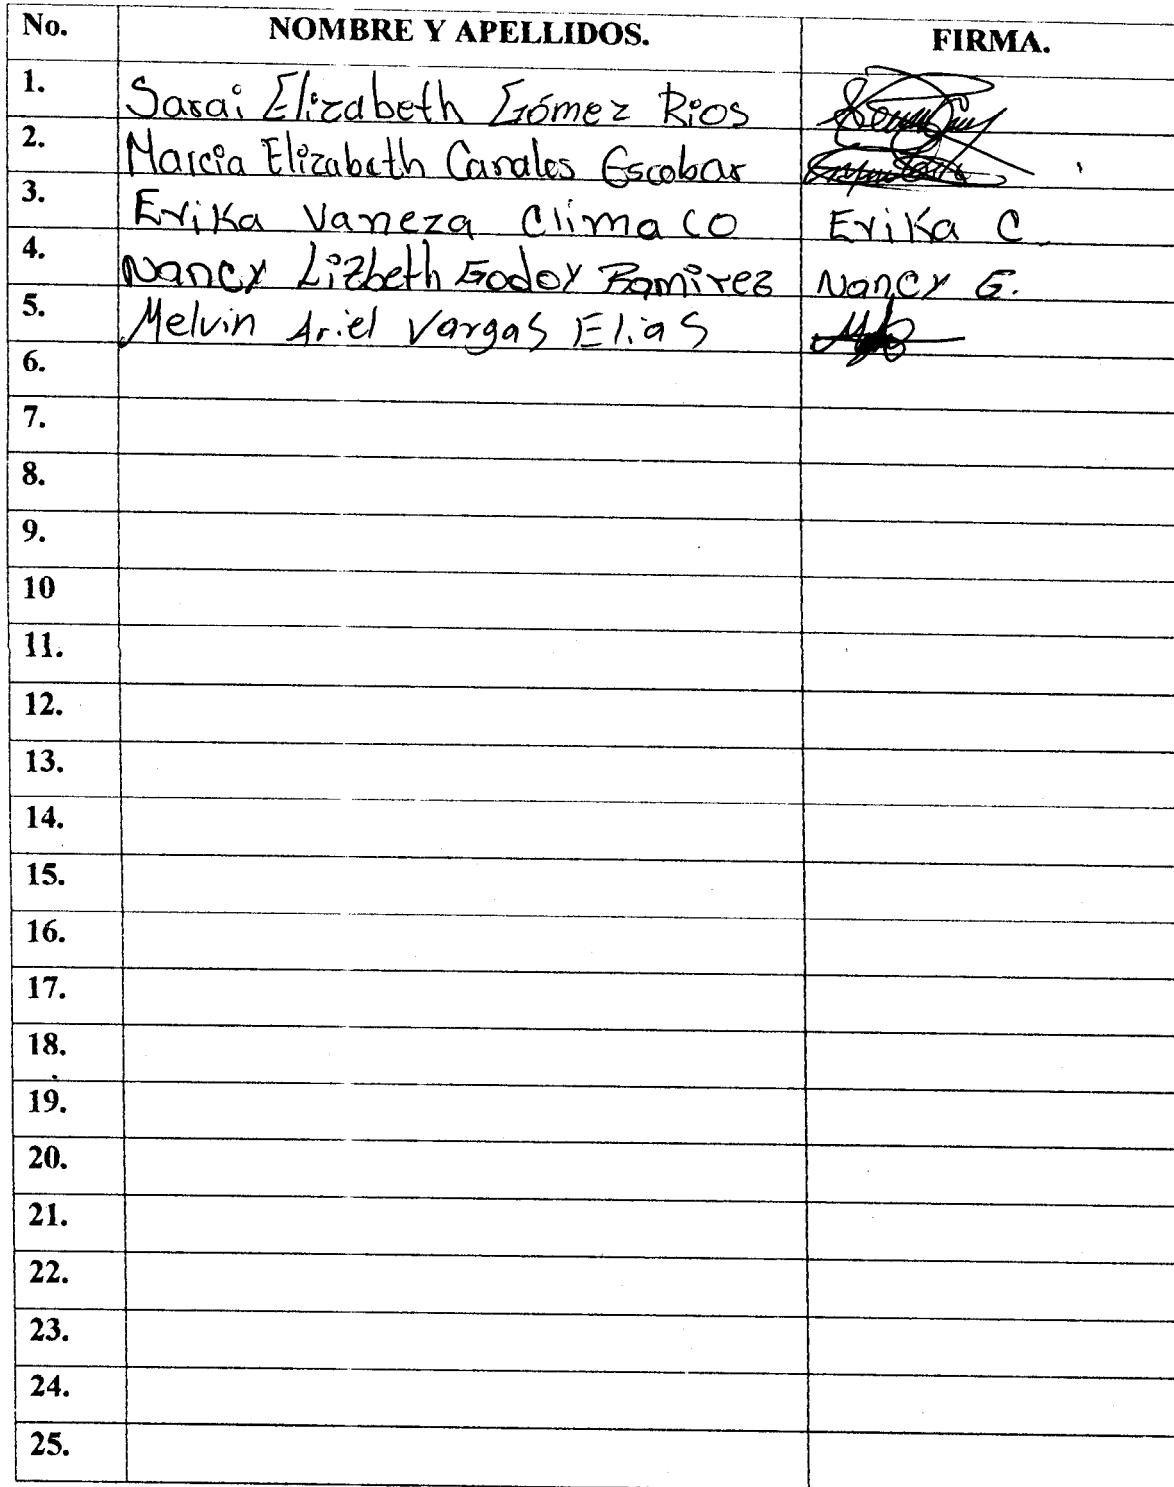 No. NOMBRE Y APELLIDOS. FIRMA.
1. Sarai Elizabeth Gómez Rios
2. Marcia Elizabeth Canales Escobar
3. Erika Vaneza Climaco Erika C.
4. Nancy Lizbeth Godoy Ramirez Nancy G.
5. Melvin Ariel Vargas Elias
6.
7.
8.
9.
10
11.
12.
13.
14.
15.
16.
17.
18.
19.
20.
21.
22.
23.
24.
25.